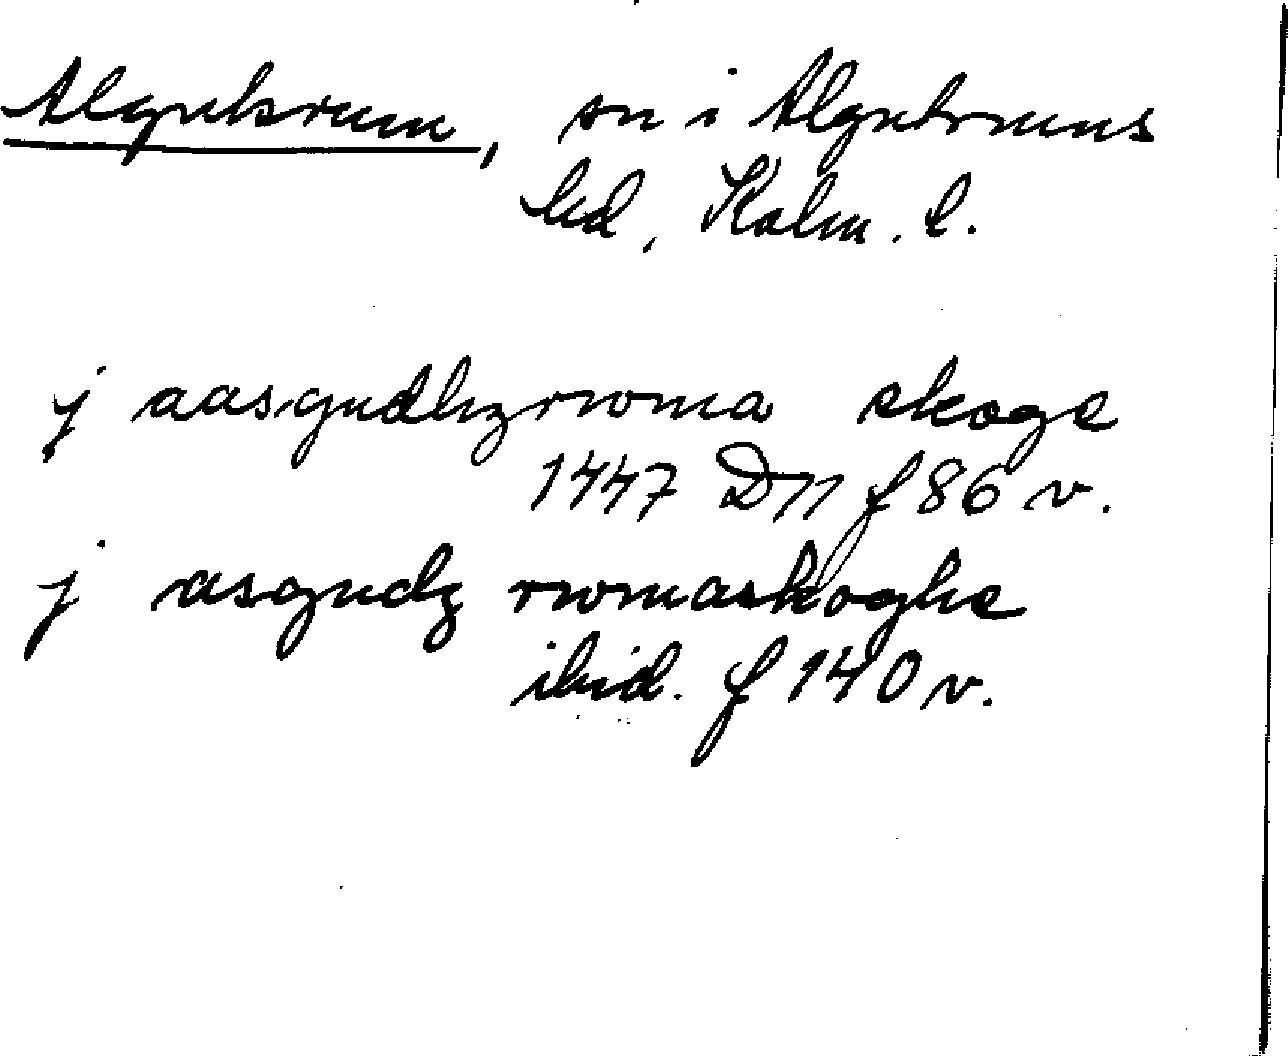 Algutsrum, sn i Algutsrums
hd, Kalm. l.
j aasgudhzrwma skoge
1447 D11 f 86 v.
j asgudz rwmaskoghe
ibid. f 140 v.